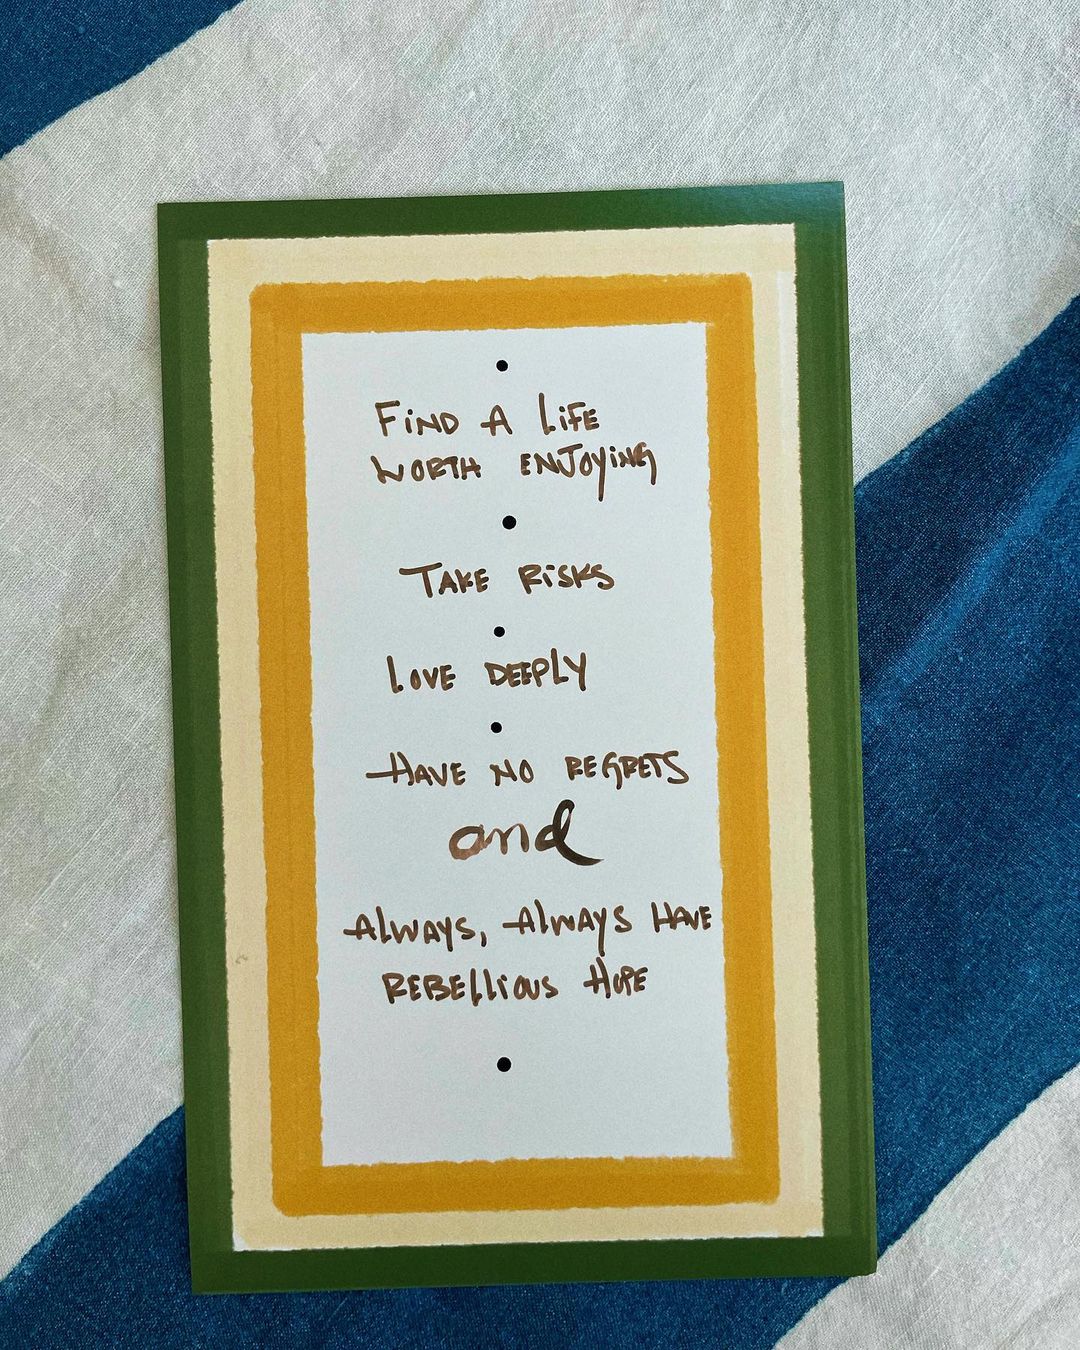 FIND A LIFE
WORTH ENJOYING
TAKE RISKS
LOVE DEEPLY
HAVE NO REGRETS
and
ALWAYS, ALWAYS HAVE
REBELLIOUS HOPE